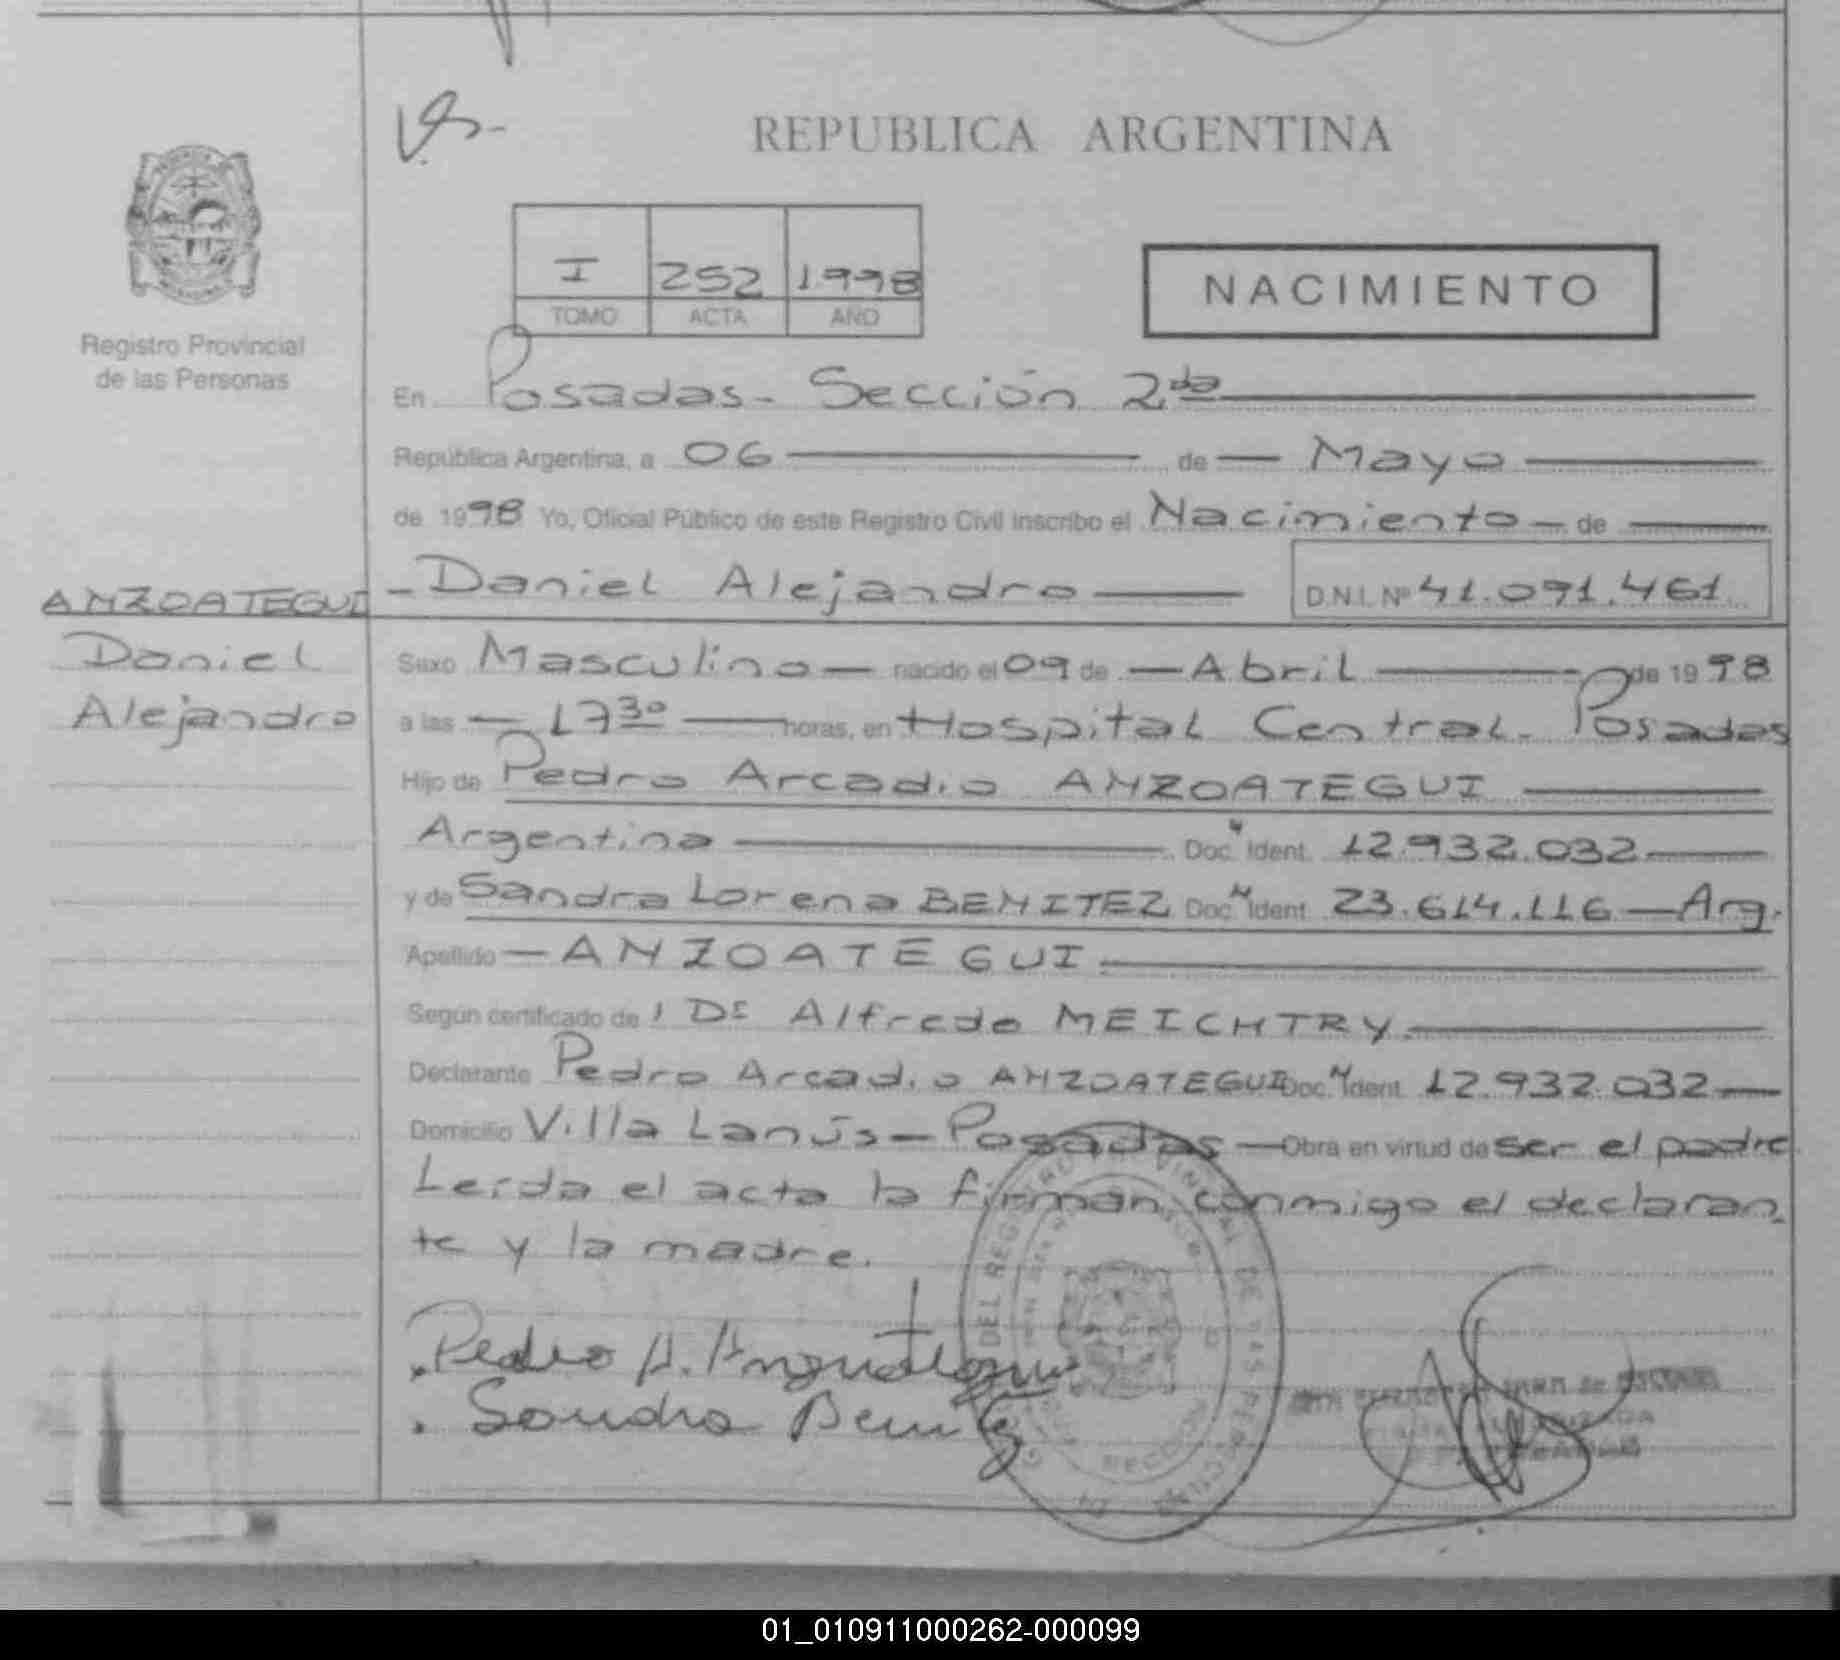 REPUBLICA ARGENTINA
I 252 1998
TOMO ACTA AÑO
NACIMIENTO
Registro Provincial
de las Personas
En Posadas - Sección 2da
República Argentina, a 06 de Mayo
de 1998 Yo, Oficial Público de este Registro Civil inscribo el Nacimiento de
Daniel Alejandro D.N.I. Nº 41.091.461
ANZOATEGUI
Daniel
Alejandro
Sexo Masculino nacido el 09 de Abril de 1998
a las 17 30 horas, en Hospital Central - Posadas
Hijo de Pedro Arcadio ANZOATEGUI
Argentina Doc. Ident. 12.932.032
y de Sandra Lorena BENITEZ Doc. Ident. 23.614.116 - Arg.
Apellido ANZOATEGUI
Según certificado de Dr Alfredo MEICHTRY
Declarante Pedro Arcadio ANZOATEGUI Doc. Ident. 12.932.032
Domicilio Villa Lanús - Posadas - Obra en virtud de ser el padre
Leída el acta la firman conmigo el declaran
te y la madre.
Pedro A. Anzuategui
Sandra Benitez
01_010911000262-000099